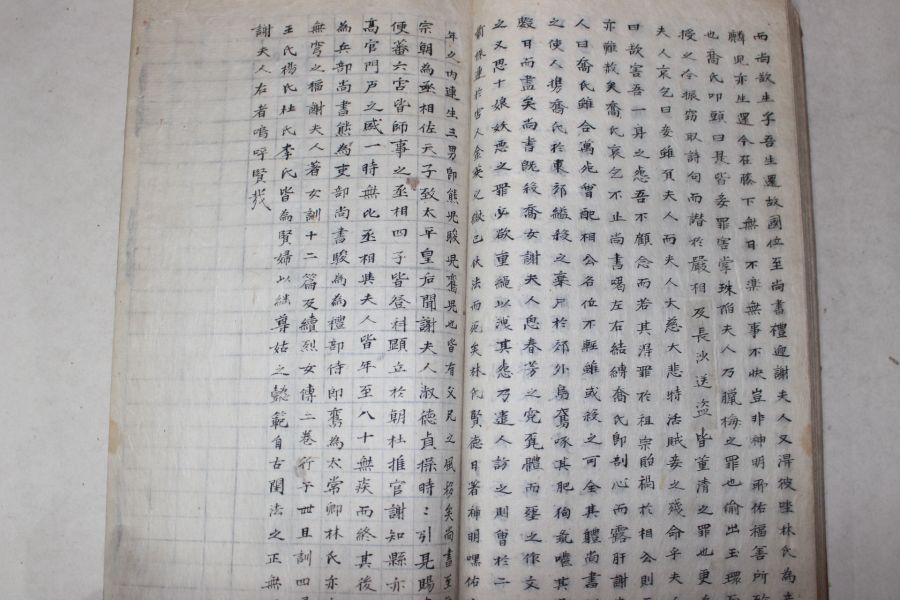 而尚故生子吾生還故國位至尚書禮迎謝夫人又得彼林氏為
麟兒亦生還今在藤下無日不樂無事不快豈非神明所佑福善所致
也喬氏叩頭曰是皆妾罪害掌珠陷夫人乃臘梅之罪也偷出玉環
授之冷振竊取詩句而譖於嚴相及長沙送盜皆董清之罪也更
夫人哀乞曰妾雖負夫人而夫人大慈大悲特活賊妾之殘命乎夫
曰故害吾一身之怨吾不顧念而若其得罪於祖宗貽禍於相公則
亦難救矣喬氏哀乞不止尚書喝左右結縛喬氏即剖心而露肝謝
人曰喬氏雖合萬死曾配相公名位不輕雖或殺之可全其體尚書
之使人携喬氏於東郊縊殺之棄尸於郊外烏鳶啄其肥狗彘囕其
骸日而盡矣尚書既殺喬女謝夫人思春芳之冤覓體而葬之作文
之又思十娘妖惡之罪必欲重繩以洩其怨乃遣人訪之則曾於
於宮人金英之獄已伏法而死矣林氏賢德日著神明嘿佑
年之內連生三男即熊兒駿兒鸞兒也皆有父兄之風格矣尚書至
宗朝為丞相佐天子致太平皇后聞謝夫人淑德貞操時〻引見賜
便蕃六宮皆師事之丞相四子皆登科顯立於朝杜推官謝知縣亦
高官門戶之盛一時無比丞相與夫人皆年至八十無疾而終其後
為兵部尚書熊為吏部尚書駿為為禮部侍郎鸞為太常卿林氏亦
無窮之福謝夫人著女訓十二篇及續烈女傳二卷行于世且訓四
王氏楊氏杜氏李氏皆為賢婦以繼尊姑之懿範自古閨法之正無
謝夫人右者嗚呼賢哉